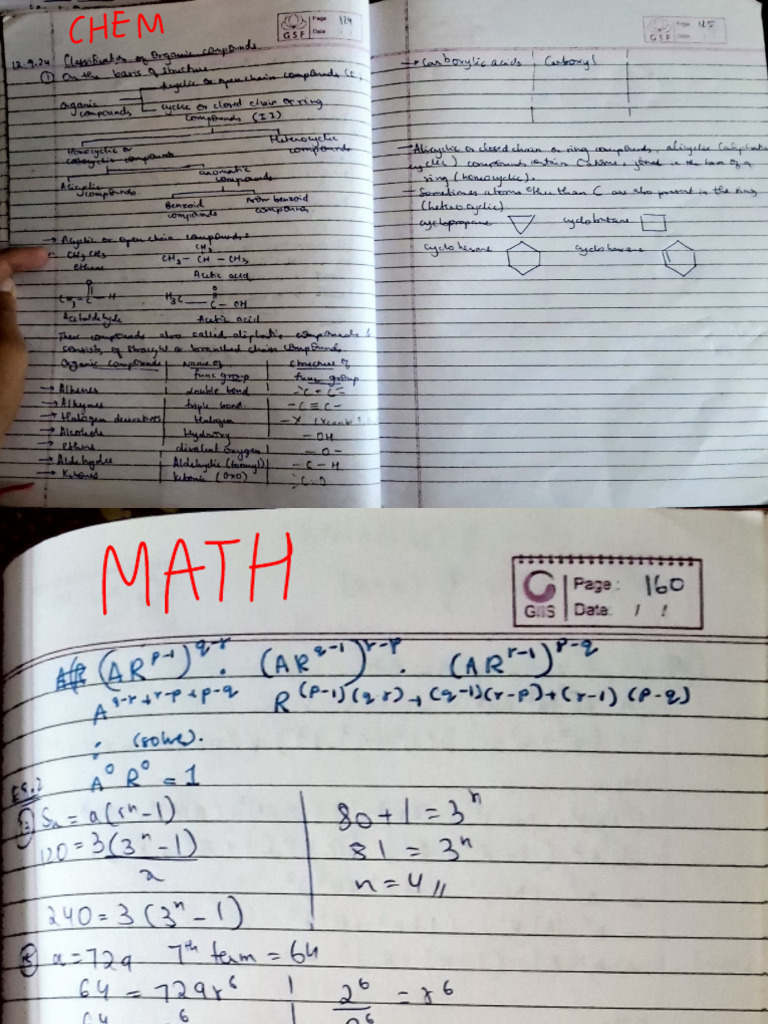 CHEM
GSF Page 124
Date
12.9.24 Classification of Organic compounds
① On the basis of structure
Acyclic or open chain compounds (I)
Organic compounds
cyclic or closed chain or ring
compounds (II)
Homocyclic or
carbocyclic compounds
Heterocyclic
compounds
Alicyclic
compounds
aromatic
compounds
Benzoid
compounds
Non benzoid
compounds
→ Acyclic or open chain compounds:
CH3 CH3
ethane
CH3
CH3 - CH - CH3
Acetic acid
O
CH3 - C - H
Acetaldehyde
O
H3C - C - OH
Acetic acid
These compounds also called aliphatic compounds &
consists of straight or branched chain compounds
Organic compounds | Name of func group | structure of func group
→ Alkenes | double bond | C = C
→ Alkynes | triple bond | - C ≡ C -
→ Halogen derivatives | Halogen | - X
→ Alcohols | Hydroxy | - OH
→ Ethers | divalent oxygen | - O -
→ Aldehydes | Aldehydic (formyl) | - C - H
→ Ketones | ketonic (oxo) | C=O
GSF Page 125
Date
→ Carboxylic acids | Carboxyl
→ Alicyclic or closed chain or ring compounds, alicyclic (aliphatic
cyclic) compounds contain C atoms joined in the form of a
ring (homocyclic).
→ Sometimes atoms other than C are also present in the ring
(heterocyclic)
cyclopropane cyclobutane
cyclohexane cyclohexene
MATH
GIIS Page: 160
Date: / /
(AR^(p-1))^(q-r) . (AR^(q-1))^(r-p) . (AR^(r-1))^(p-q)
A^(q-r+r-p+p-q) R^((p-1)(q-r)+(q-1)(r-p)+(r-1)(p-q))
: (solve).
A^0 R^0 = 1
Sn = a(rⁿ-1)
120 = 3(3ⁿ-1)
2
240 = 3(3ⁿ-1)
80+1 = 3ⁿ
81 = 3ⁿ
n = 4 //
a = 729 7th term = 64
64 = 729r⁶
2⁶ = r⁶